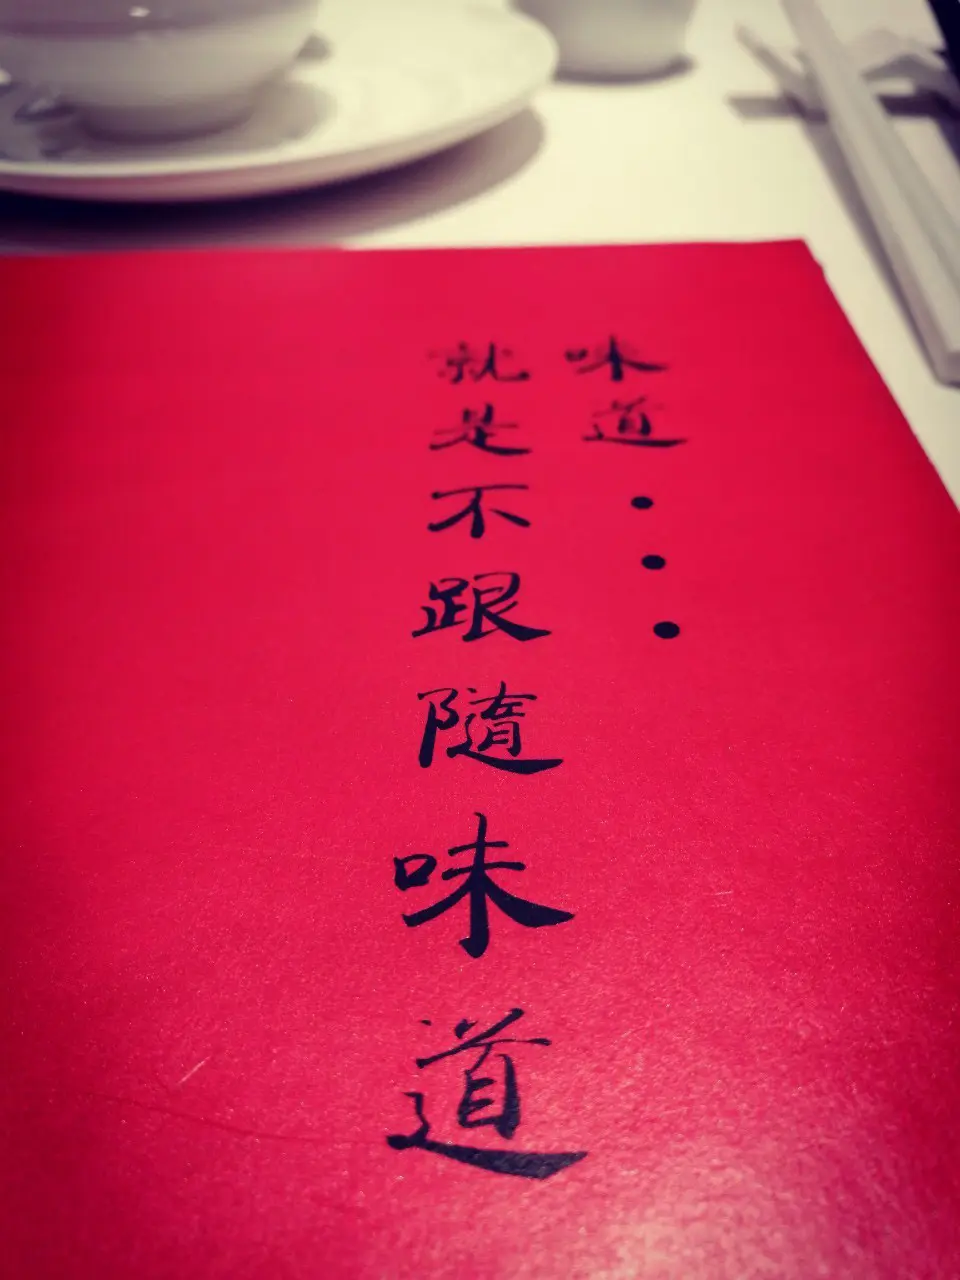 味道•••
就是不跟隨味道